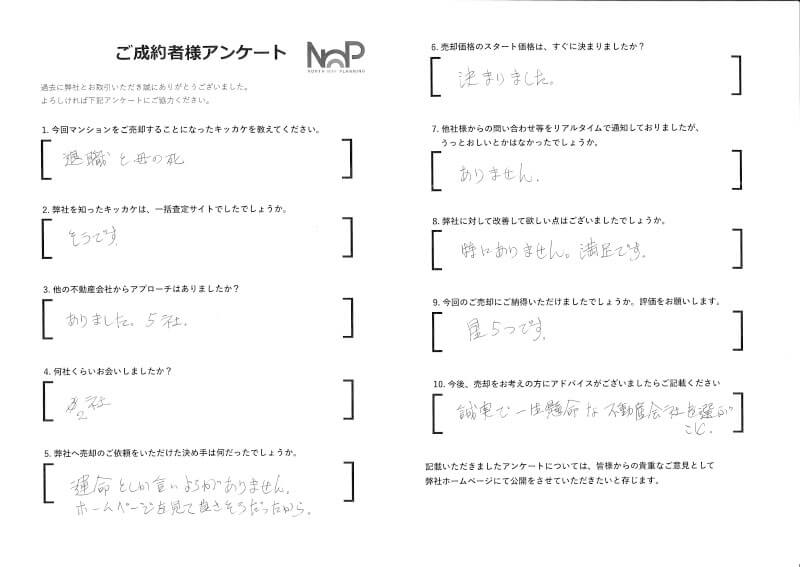 ご成約者様アンケート
NaP
NORTH PLANNING
過去に弊社とお取引いただき誠にありがとうございました。
よろしければ下記アンケートにご協力ください。
1. 今回マンションをご売却することになったキッカケを教えてください。
退職と母の死
2. 弊社を知ったキッカケは、一括査定サイトでしたでしょうか。
そうです。
3. 他の不動産会社からアプローチはありましたか?
ありました。5社.
4. 何社くらいお会いしましたか?
2社
5. 弊社へ売却のご依頼をいただけた決め手は何だったでしょうか。
運命としか言いようがありません.
ホームページを見て良さそうだったから.
6. 売却価格のスタート価格は、すぐに決まりましたか?
決まりました。
7. 他社様からの問い合わせ等をリアルタイムで通知しておりましたが、
うっとおしいとかはなかったでしょうか。
ありません.
8. 弊社に対して改善して欲しい点はございましたでしょうか。
特にありません。満足です.
9. 今回のご売却にご納得いただけましたでしょうか。評価をお願いします。
星5つです.
10. 今後、売却をお考えの方にアドバイスがございましたらご記載ください
誠実で一生懸命な不動産会社を選ぶ
こと.
記載いただきましたアンケートについては、皆様からの貴重なご意見として
弊社ホームページにて公開をさせていただきたいと存じます。